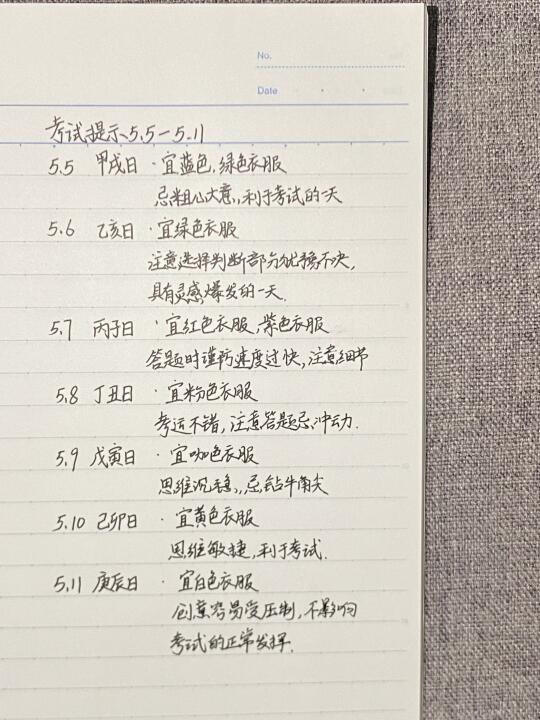 No.
Date
考试提示、5.5—5.11
5.5 甲戌日 · 宜蓝色,绿色衣服
忌粗心大意,利于考试的一天
5.6 乙亥日 · 宜绿色衣服
注意选择判断部分犹豫不决,
具有灵感爆发的一天.
5.7 丙子日 · 宜红色衣服,紫色衣服
答题时谨防速度过快,注意细节
5.8 丁丑日 · 宜粉色衣服
考运不错,注意答题忌冲动.
5.9 戊寅日 · 宜咖色衣服
思维沉稳,忌钻牛角尖
5.10 己卯日 · 宜黄色衣服
思维敏捷,利于考试.
5.11 庚辰日 · 宜白色衣服
创意容易受压制,不影响
考试的正常发挥.